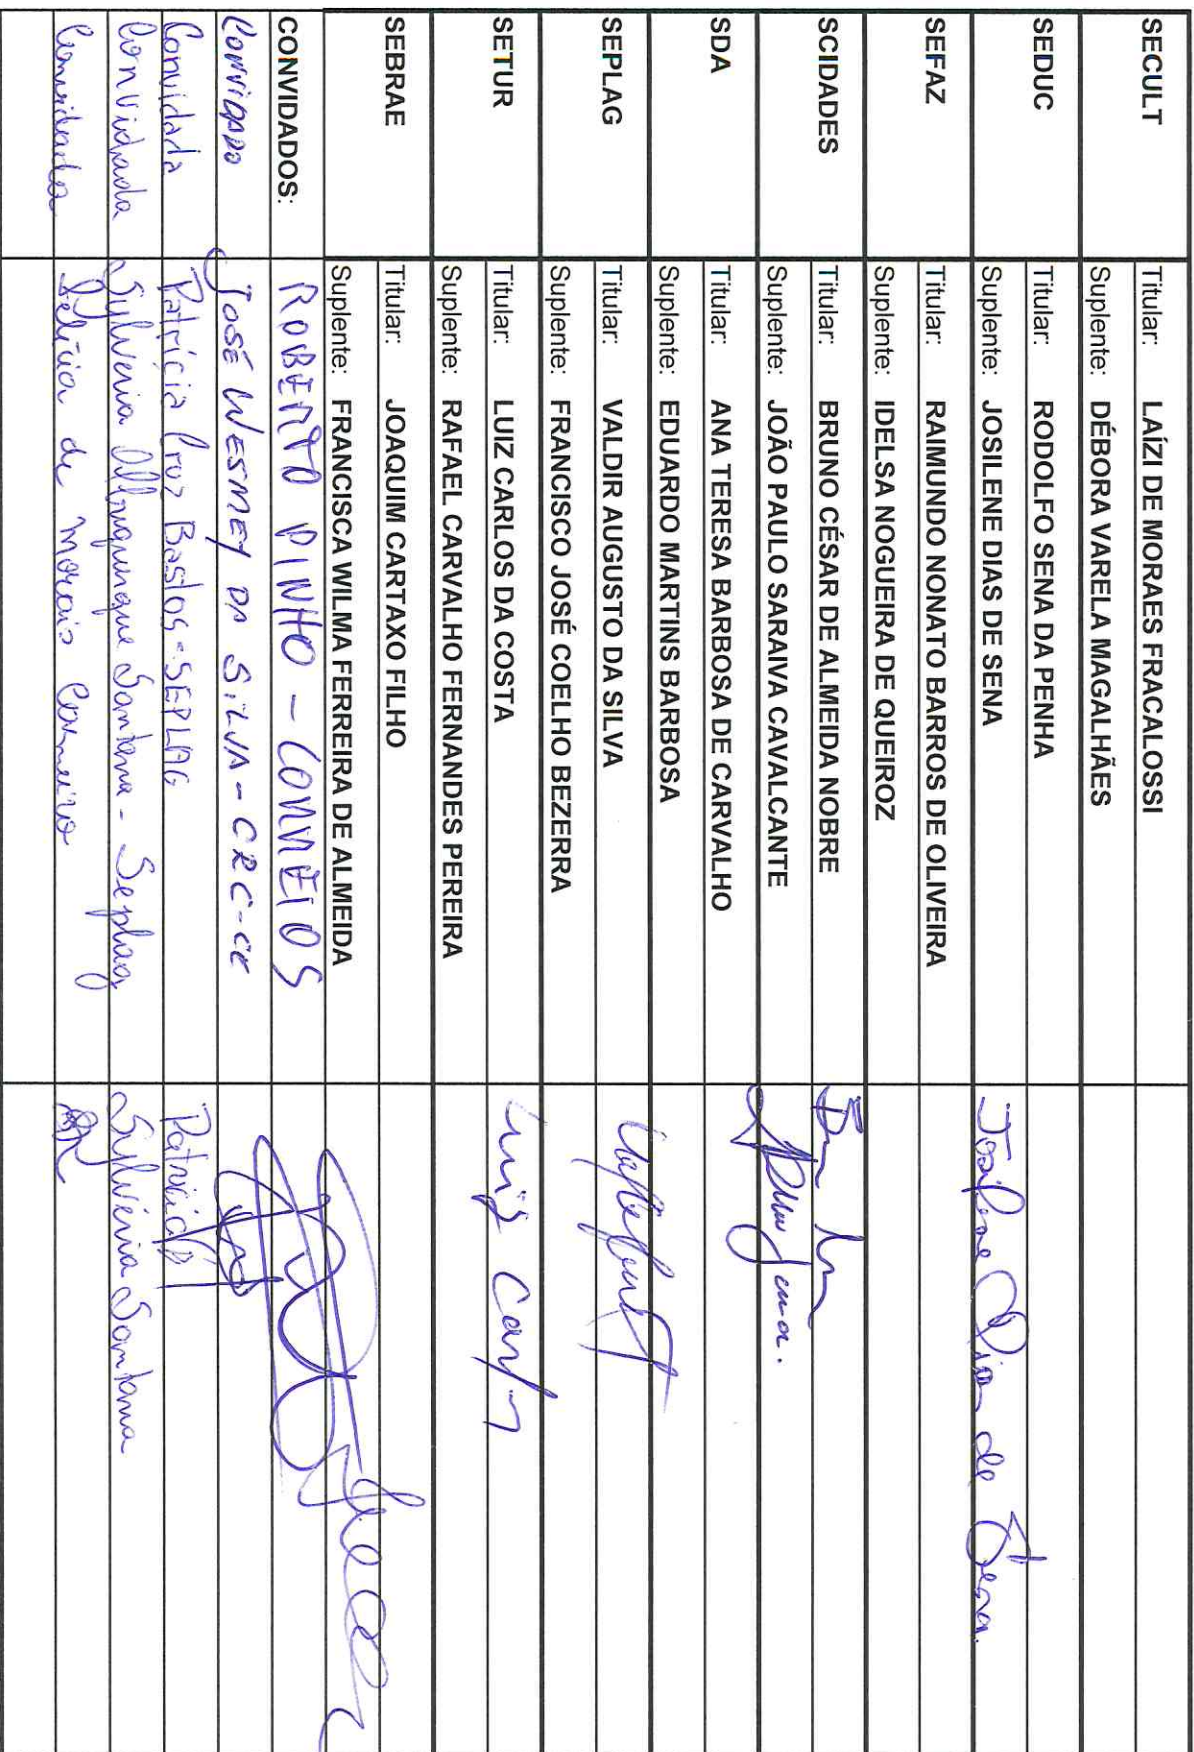 SECULT Titular: LAÍZI DE MORAES FRACALOSSI
Suplente: DÉBORA VARELA MAGALHÃES
SEDUC Titular: RODOLFO SENA DA PENHA
Suplente: JOSILENE DIAS DE SENA Josilene Dias de Sena.
SEFAZ Titular: RAIMUNDO NONATO BARROS DE OLIVEIRA
Suplente: IDELSA NOGUEIRA DE QUEIROZ
SCIDADES Titular: BRUNO CÉSAR DE ALMEIDA NOBRE
Suplente: JOÃO PAULO SARAIVA CAVALCANTE
SDA Titular: ANA TERESA BARBOSA DE CARVALHO
Suplente: EDUARDO MARTINS BARBOSA
SEPLAG Titular: VALDIR AUGUSTO DA SILVA
Suplente: FRANCISCO JOSÉ COELHO BEZERRA
SETUR Titular: LUIZ CARLOS DA COSTA Luiz
Suplente: RAFAEL CARVALHO FERNANDES PEREIRA
SEBRAE Titular: JOAQUIM CARTAXO FILHO
Suplente: FRANCISCA WILMA FERREIRA DE ALMEIDA
CONVIDADOS: ROBERTO PINHO - CORREIOS
CONVIDADO JOSÉ WESMEY DA SILVA - CRC-CE
Convidada Patrícia Bastos - SEPLAG Patrícia
Convidada Sylvenia Albuquerque Santana - Seplag Sylvênia Santana
Convidada de Morais Carneiro